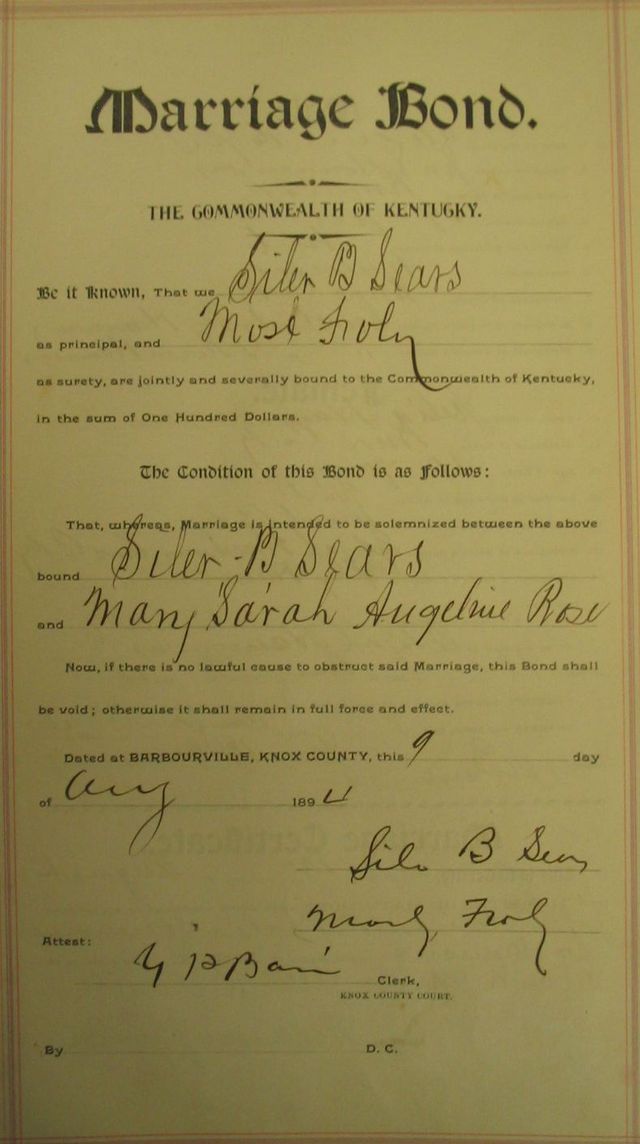 Marriage Bond.
THE COMMONWEALTH OF KENTUCKY.
Be it Known, That we Siler B Sears
as principal, and Mose Froly
as surety, are jointly and severally bound to the Commonwealth of Kentucky,
in the sum of One Hundred Dollars.
The Condition of this Bond is as Follows:
That, whereas, Marriage is intended to be solemnized between the above
bound Siler B Sears
and Mary Sarah Angeline Rose
Now, if there is no lawful cause to obstruct said Marriage, this Bond shall
be void; otherwise it shall remain in full force and effect.
Dated at BARBOURVILLE, KNOX COUNTY, this 9 day
of Aug 1894
B
Froly
Attest:
Clerk,
KNOX COUNTY COURT.
By D. C.